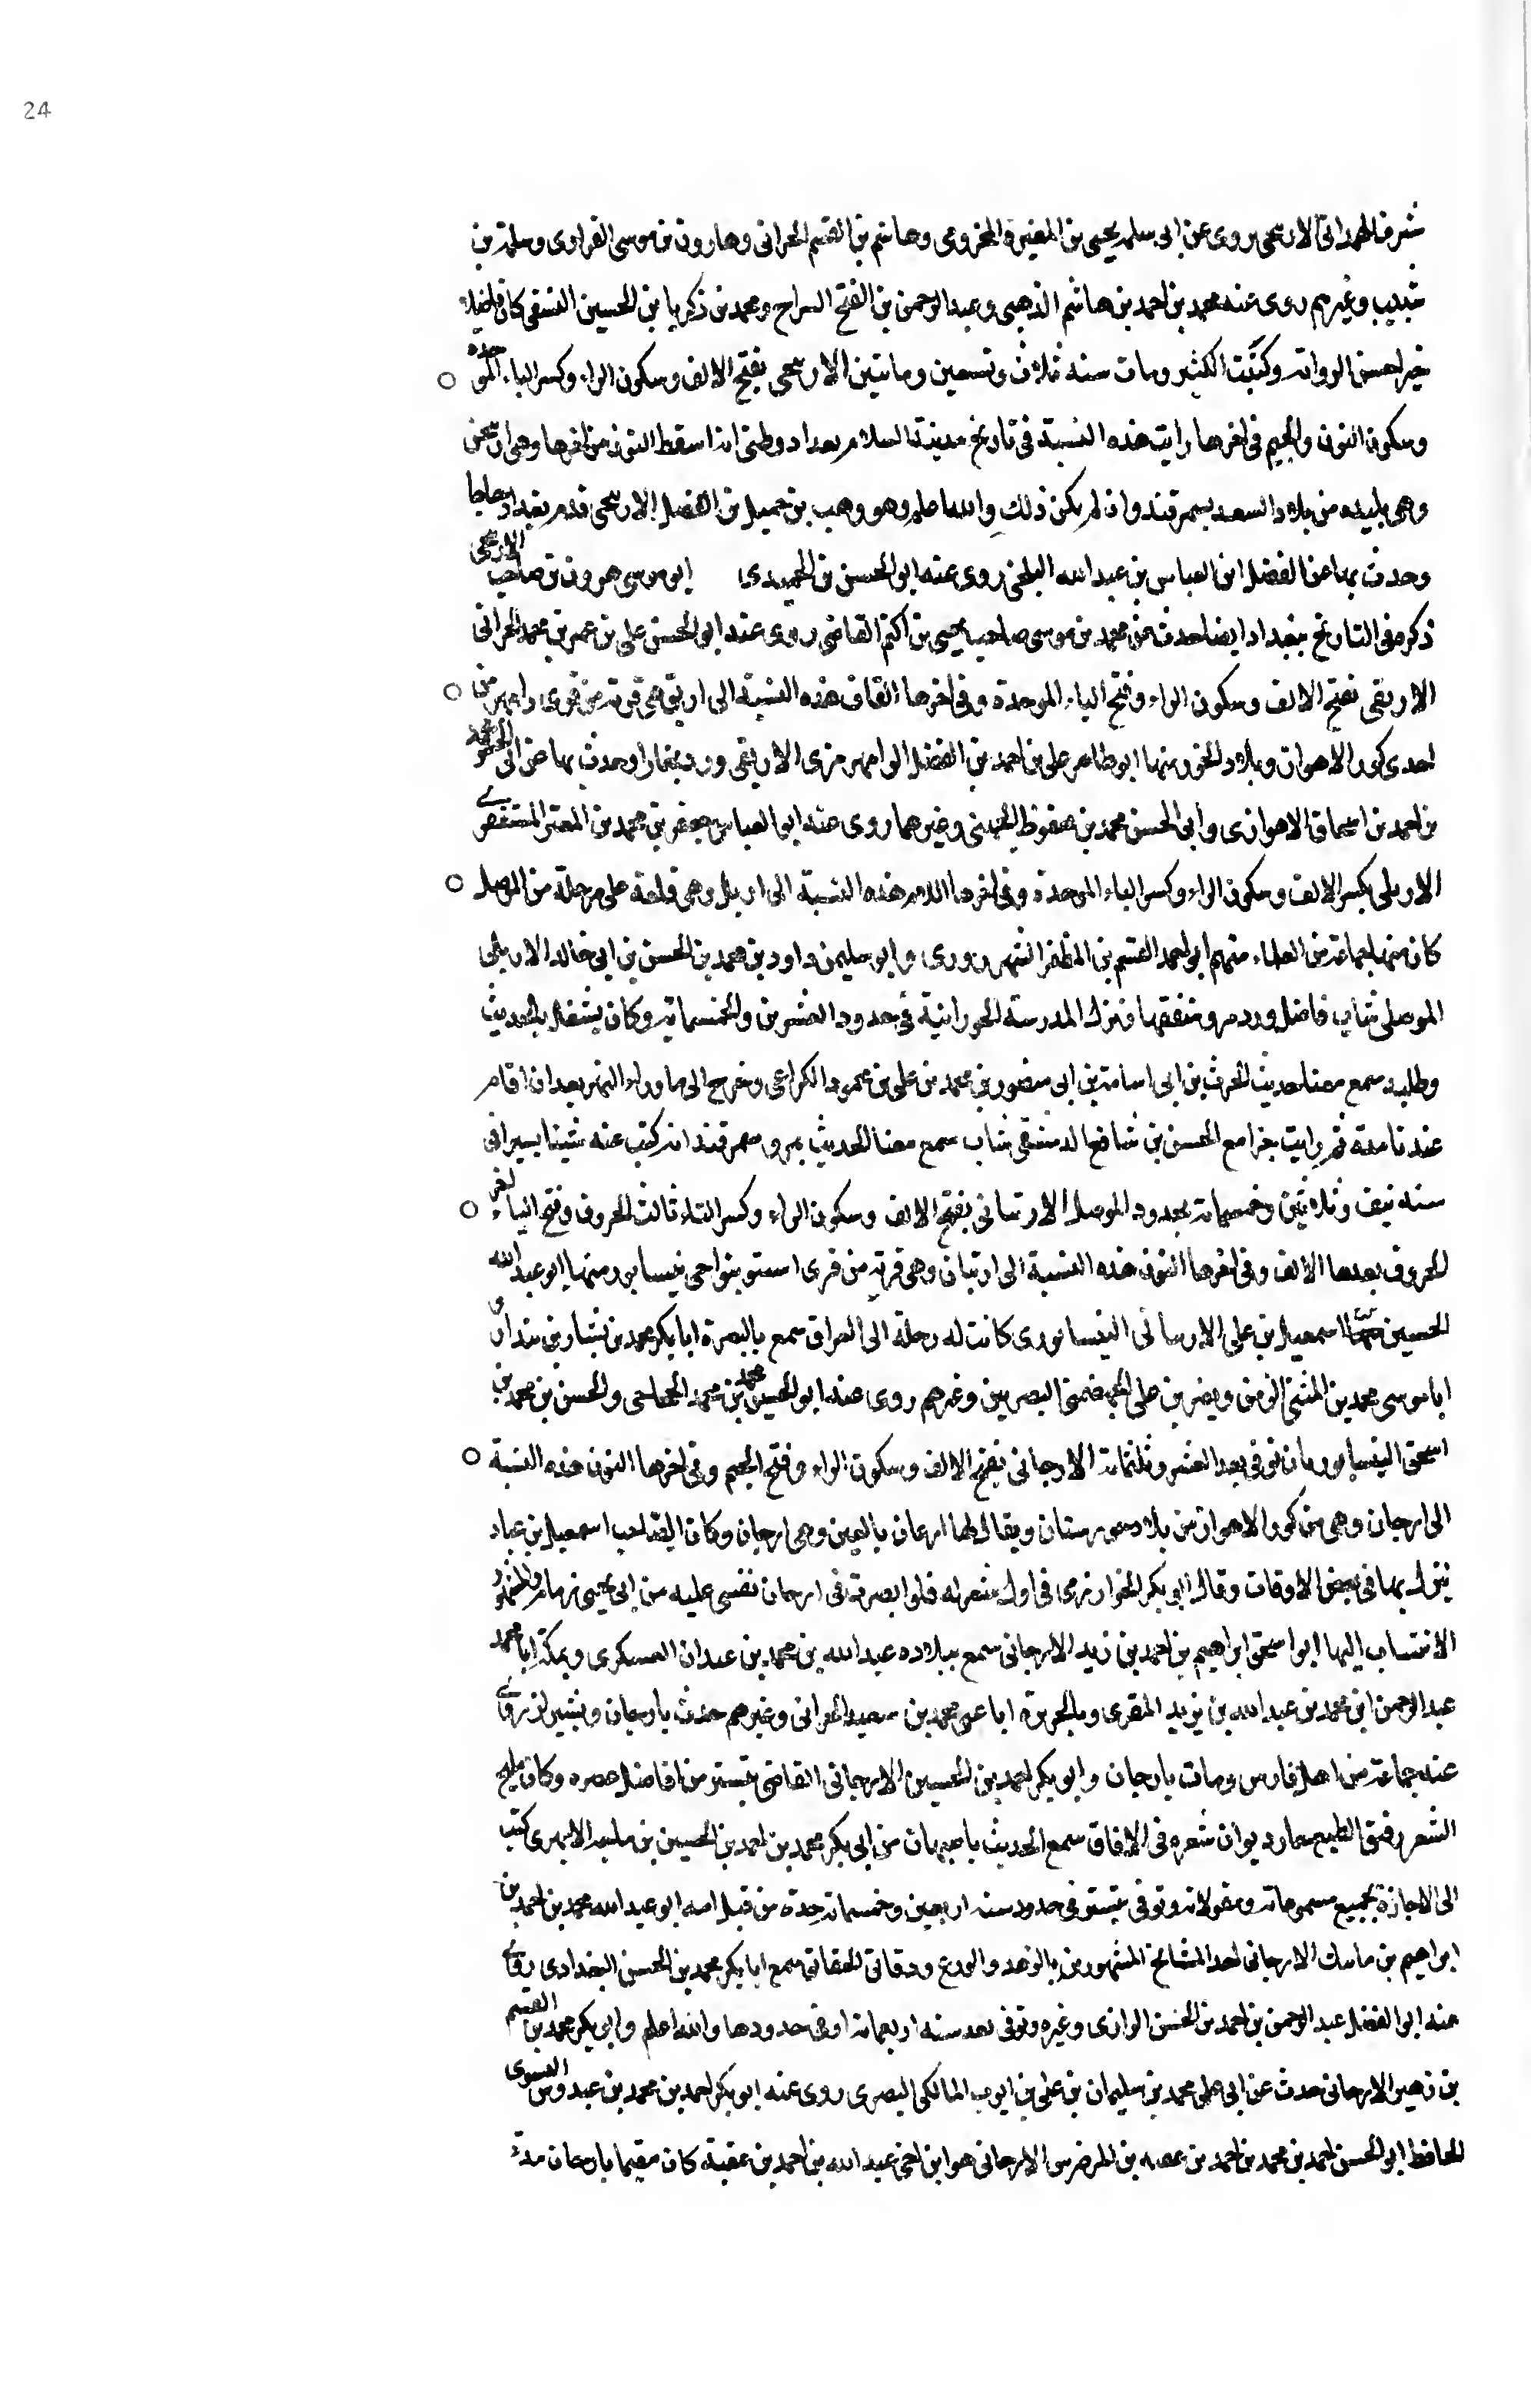 24
شرف الهمدانى الاربنجى يروى عن ابى سلمة يحيى بن المغيرة المخزومى وهاشم بن القسم الحرانى وهارون بن موسى الفراوى وسلمة بن
شبيب وغيرهم روى عنه محمد بن احمد بن هاشم الذهبى وعبد الرحمن بن الفتح السراج ومحمد بن زكريا بن الحسين النسفى كان فاضلا
خيرا حسن الرواية وكتب الكثير ومات سنه ثلاث وتسعين وماتين الاربنجى بفتح الالف وسكون الراء وكسر الباء الموحدة
وسكون النون والجيم فى اخرها رايت هذه النسبة فى تاريخ مدينة السلام بغداد وظنى انه اسقط النون من اخرها وهى اربنجن
وهى بليده من بلاد السعد بسمرقند وان لم يكن ذلك والله اعلم وهو وهب بن جميل بن الفضل الاربنجى قدم بغداد حاجا
وحدث بها عن الفضل ابن العباس بن عبد الله البلخى روى عنه ابو الحسن بن الحميدى ابو موسى هرون بن صاحب الاربنجى
ذكره فى التاريخ ببغداد ايضا حدث عن محمد بن موسى صاحب يحيى بن اكثم القاضى روى عنه ابو الحسن على بن عمر بن محمد الحرانى
الاربقى بفتح الالف وسكون الراء وفتح الباء الموحدة وفى اخرها القاف هذه النسبة الى اربق هى قرية من قرى رامهرمز
احدى كور الاهواز وبلاد الخوز منها ابو طاهر على بن احمد بن الفضل الرامهرمزى الاربقى ورد بخارا وحدث بها عن ابى
بن احمد بن اسحاق الاهوازى وابى الحسن محمد بن محفوظ الجهنى وغيرهما روى عنه ابو العباس جعفر بن محمد بن المعتز المستغفرى
الاربلى بكسر الالف وسكون الراء وكسر الباء الموحدة وفى اخرها اللام هذه النسبة الى اربل وهى قلعة على مرحلة من الموصل
كان منها جماعة من العلماء منهم ابى احمد القسم بن المظفر الشهرزورى وابو سليمن داود بن محمد بن الحسن بن ابى خالد الاربلى
الموصلى شاب فاضل ورد مرو متفقها ونزل المدرسة الحورانية فى حدود العشرين والخمسماية وكان يشتغل بالحديث
وطلبه سمع معنا حديث الحرث بن ابى اسامة بن ابى منصور بن محمد بن على بن محمود الكراعى وخرج الى ما وراء النهر بعد ان اقام
عندنا مدة ثم رايت جزا مع الحسن بن شافع الدمشقى شاب سمع معنا الحديث بمرو سمرقند انه كتب عنه شيئا يسيرا فى
سنه نيف وثلاثين وخمسماية بحدود الموصل الارتيانى بفتح الالف وسكون الراء وكسر التاء ثالث الحروف وفتح الياء اخر
الحروف بعدها الالف وفى اخرها النون هذه النسبة الى ارتيان وهى قرية من قرى استو بنواحى نيسابور منها ابو عبد الله
الحسين بن اسمعيل بن على الارتيانى النيسابورى كانت له رحلة الى العراق سمع بالبصرة ابا بكر محمد بن بشار بن بندار و
ابا موسى محمد بن المثنى الزمن ونصر بن على الجهضمى البصريين وغيرهم روى عنه ابو الحسين محمد بن محمد الحجاجى والحسن بن محمد بن
اسحق النيسابوريان توفى بعد العشر وثلثماية الارجانى بفتح الالف وسكون الراء وفتح الجيم وفى اخرها النون هذه النسبة
الى ارجان وهى من كور الاهواز من بلاد خوزستان ويقال لها ارغان بالغين وهى ارجان وكان الصاحب اسمعيل بن عباد
ينزل بها فى بعض الاوقات وقال ابو بكر الخوارزمى فى اول شعر له فلو ابصرت فى ارجان نفسى عليه من ابى يحيى زمام والمشهور
الانتساب اليها ابو اسحق ابراهيم بن احمد بن زيد الارجانى سمع ببلاده عبد الله بن محمد بن عبدان العسكرى وبمكة ابا محمد
عبد الرحمن ابن محمد بن عبد الله بن يزيد المقرى وبالجزيرة ابا على محمد بن سعيد الحرانى وغيرهم حدث بارجان وبشيراز روى
عنه جماعة من اهل فارس ومات بارجان وابو بكر احمد بن الحسين الارجانى القاضى بتستر من افاضل عصره وكان مليح
الشعر رقيق الطبع سار ديوان شعره فى الافاق سمع الحديث باصبهان من ابى بكر محمد بن احمد بن الحسين بن ماجه الابهرى كتب
الى الاجازة بجميع مسموعاته ومقولاته وتوفى بتستر فى حدود سنه اربعين وخمسماية جده من قبل امه ابو عبد الله محمد بن احمد بن
ابراهيم بن ماسك الارجانى احد المشايخ المشهورين بالزهد والورع ودقائق الحقائق سمع ابا بكر محمد بن الحسن البغدادى روى
عنه ابو الفضل عبد الرحمن بن احمد بن الحسن الرازى وغيره وتوفى بعد سنه اربعماية او فى حدودها والله اعلم وابو بكر محمد بن القسم
بن زهير الارجانى حدث عن ابى على محمد بن سليمان بن على بن ايوب المالكى البصرى روى عنه ابو بكر احمد بن محمد بن عبدوس النسوى
الحافظ ابو الحسن احمد بن محمد بن احمد بن بن المرضرس الارجانى هو ابن اخى عبد الله بن احمد بن عقبة كان مقيما بارجان مدة